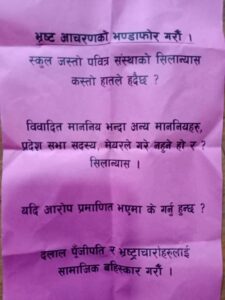 भ्रष्ट आचरणको भण्डाफोर गरौं ।
स्कुल जस्तो पवित्र संस्थाको सिलान्यास
कस्तो हातले हुदैछ ?
विवादित माननिय भन्दा अन्य माननियहरु,
प्रदेश सभा सदस्य, मेयरले गरे नहुने हो र ?
सिलान्यास ।
यदि आरोप प्रमाणित भएमा के गर्नु हुन्छ ?
दलाल पूँजीपति र भ्रष्ट्राचारीहरुलाई
सामाजिक बहिस्कार गरौं ।